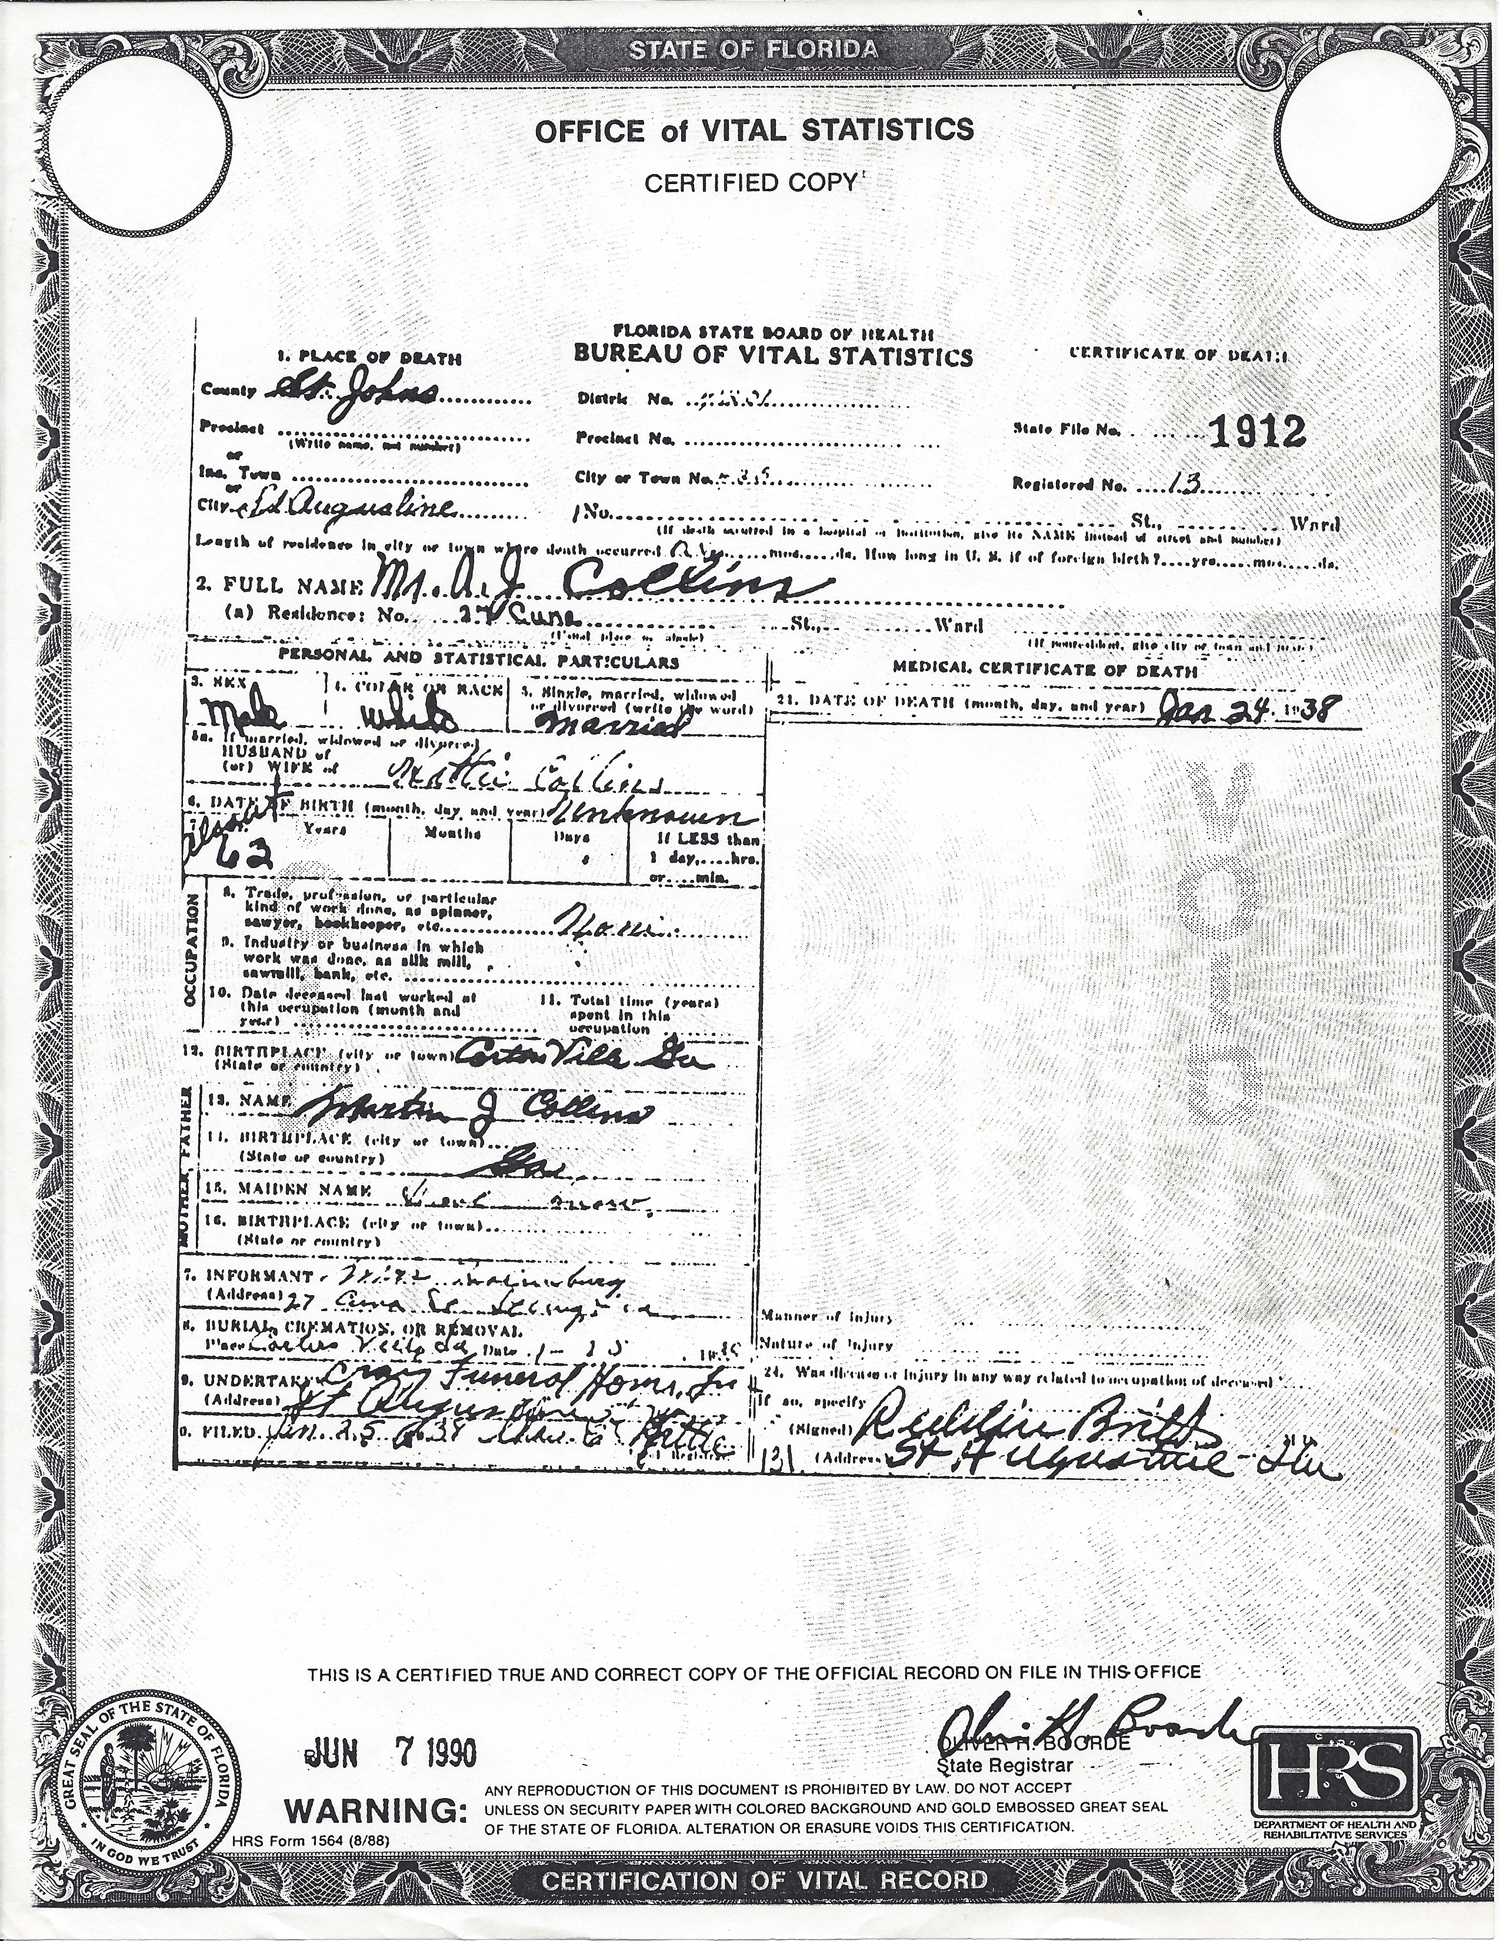 STATE OF FLORIDA
OFFICE of VITAL STATISTICS
CERTIFIED COPY
FLORIDA STATE BOARD OF HEALTH
BUREAU OF VITAL STATISTICS
CERTIFICATE OF DEATH
1. PLACE OF DEATH
County St. Johns
District No.
Precinct
(Write name, not number)
Precinct No.
State File No. 1912
or
Inc. Town
City or Town No.
Registered No. 13
or
City St Augustine
No. St., Ward
(If death occurred in a hospital or institution, give its NAME instead of street and number)
Length of residence in city or town where death occurred yrs. mos. ds. How long in U. S. if of foreign birth? yrs. mos. ds.
2. FULL NAME Mr. A. J. Collins
(a) Residence: No. 27 Cuna St., Ward
(Usual place of abode) (If nonresident, give city or town and state)
PERSONAL AND STATISTICAL PARTICULARS
MEDICAL CERTIFICATE OF DEATH
3. SEX Male
4. COLOR OR RACE White
5. Single, married, widowed or divorced (write the word) Married
21. DATE OF DEATH (month, day, and year) Jan 24 1938
5a. If married, widowed or divorced
HUSBAND of
(or) WIFE of Mattie Collins
6. DATE OF BIRTH (month, day, and year) Unknown
7. About 62 Years Months Days If LESS than
1 day, hrs.
or min.
OCCUPATION
8. Trade, profession, or particular
kind of work done, as spinner,
sawyer, bookkeeper, etc.
9. Industry or business in which
work was done, as silk mill,
sawmill, bank, etc.
10. Date deceased last worked at
this occupation (month and
year)
11. Total time (years)
spent in this
occupation
12. BIRTHPLACE (city or town) Ga
(State or country)
FATHER
13. NAME Martin J Collins
14. BIRTHPLACE (city or town)
(State or country) Ga.
MOTHER
15. MAIDEN NAME
16. BIRTHPLACE (city or town)
(State or country)
7. INFORMANT
(Address) 27 Cuna St
8. BURIAL, CREMATION, OR REMOVAL
Place Date 1-25
9. UNDERTAKER Craig Funeral Home, In
(Address) St Augustine
0. FILED Jan. 25, 1938
Registrar
Manner of Injury
Nature of Injury
24. Was disease or injury in any way related to occupation of deceased
If so, specify
(Signed) Reddin Britt
131 (Address) St Augustine Fla
VOID
THIS IS A CERTIFIED TRUE AND CORRECT COPY OF THE OFFICIAL RECORD ON FILE IN THIS OFFICE
JUN 7 1990
Oliver H. Boorde
OLIVER H. BOORDE
State Registrar
WARNING:
ANY REPRODUCTION OF THIS DOCUMENT IS PROHIBITED BY LAW. DO NOT ACCEPT
UNLESS ON SECURITY PAPER WITH COLORED BACKGROUND AND GOLD EMBOSSED GREAT SEAL
OF THE STATE OF FLORIDA. ALTERATION OR ERASURE VOIDS THIS CERTIFICATION.
HRS Form 1564 (8/88)
GREAT SEAL OF THE STATE OF FLORIDA
IN GOD WE TRUST
HRS
DEPARTMENT OF HEALTH AND
REHABILITATIVE SERVICES
CERTIFICATION OF VITAL RECORD